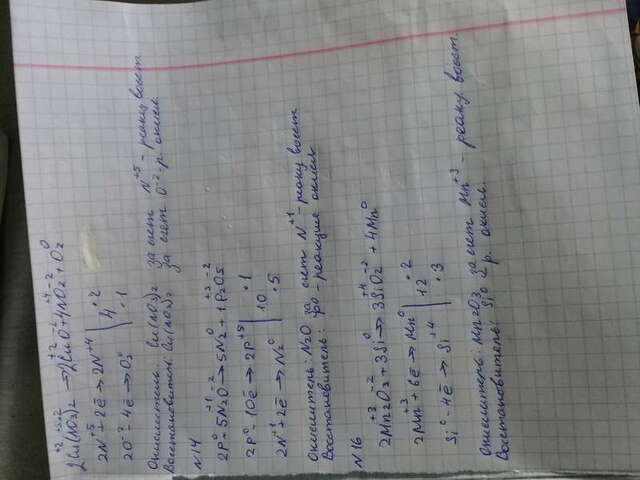 +2 +5 -2 +2 -2 +4 -2 0
2Cu(NO3)2 → 2CuO + 4NO2 + O2
+5 +4
2N + 2ē → 2N | 4 · 2
2O -2 - 4ē → O2 0 | · 1
Окислитель: Cu(NO3)2 за счет N+5 - реакц. восст.
Восстановитель: Cu(NO3)2 за счет O-2 - р. окисл.
N14
0 +1 -2 0 +5 -2
2P + 5N2O → 5N2 + 1P2O5
2P0 - 10ē → 2P+5 | 10 · 1
2N+1 + 2ē → N2 0 | · 5
Окислитель: N2O за счет N+1 - реакц восст
Восстановитель: P0 - реакция окисл
N16
+3 -2 0 +4 -2
2Mn2O3 + 3Si → 3SiO2 + 4Mn0
+3
2Mn + 6ē → Mn0 | 12 · 2
Si0 - 4ē → Si+4 | · 3
Окислитель: Mn2O3 за счет Mn+3 - реакц восст.
Восстановитель: Si0 р. окисл.